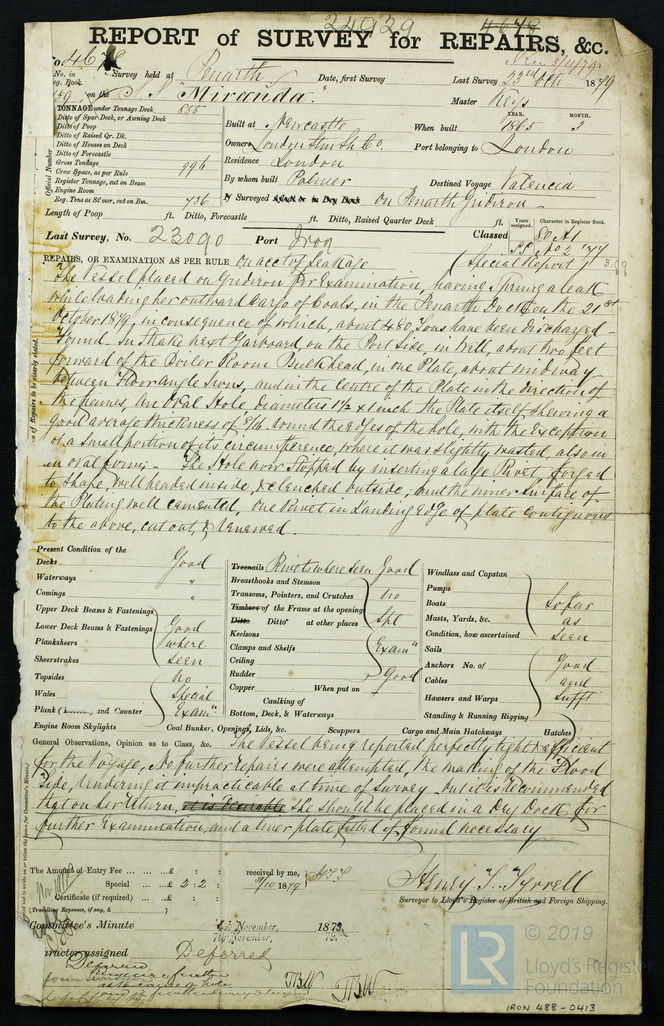 24929
REPORT of SURVEY for REPAIRS, &c.
No. in Reg. Book.
Survey held at Penarth
Date, first Survey
Last Survey 23rd Oct. 1879
on the S.S. "Miranda."
Master Keys
TONNAGE under Tonnage Deck 855
Ditto of Spar Deck, or Awning Deck
Ditto of Poop
Ditto of Raised Qr. Dk.
Ditto of Houses on Deck
Ditto of Forecastle
Gross Tonnage 996
Crew Space, as per Rule
Register Tonnage, cut on Beam
Engine Room
Reg. Tons as St'mer, cut on Bm. 736
Official Number
Built at Newcastle
When built YEAR. 1865 MONTH. 3
Owners London Stm Sh. Co.
Port belonging to London
Residence London
By whom built Palmer
Destined Voyage Valencia
Surveyed Afloat or in Dry Dock On Penarth Gridiron
Length of Poop ft. Ditto, Forecastle ft. Ditto, Raised Quarter Deck ft.
Last Survey, No. 23090 Port Iron
Classed
Years assigned.
Character in Register Book.
80 A1
REPAIRS, OR EXAMINATION AS PER RULE on acct of Leakage
(Special Report)
The Vessel placed on Gridiron for Examination, having sprung a leak
while loading her outward Cargo of Coals, in the Penarth Dock on the 21st
October 1879, in consequence of which, about 480 Tons have been discharged.
Found. In strake next Garboard on the Port Side, in Well, about two feet
forward of the Boiler Room Bulkhead, in one Plate, about midway
between Floor angle Irons, and in the centre of the Plate in the direction of
the frames, An Oval Hole, diameters 1½ x 1 inch the Plate itself shewing a
good average thickness of 9/16 round the edges of the hole, with the exception
of a small portion of its circumference, where it was slightly wasted, also in
in oval form. The Hole now stopped by inserting a large Rivet, forged
to shape, well headed inside, & clenched outside, and the inner surface of
the Plating well cemented, One Rivet in Landing Edge of plate contiguous
to the above, cut out, & renewed.
Present Condition of the
Decks Good
Waterways "
Comings "
Upper Deck Beams & Fastenings
Lower Deck Beams & Fastenings Good
Planksheers where
Sheerstrakes seen
Topsides no
Wales Special
Plank and Counter Examn
Engine Room Skylights
Treenails Rivets where seen Good
Breasthooks and Stemson
Transoms, Pointers, and Crutches no
Timbers of the Frame at the opening
Ditto Ditto at other places Spl
Keelsons
Clamps and Shelfs Examn
Ceiling
Rudder Good
Copper When put on
Caulking of
Bottom, Deck, & Waterways
Coal Bunker, Openings, Lids, &c. Scuppers Cargo and Main Hatchways Hatches
Windlass and Capstan
Pumps
Boats So far
Masts, Yards, &c. as
Condition, how ascertained seen
Sails
Anchors No. of Good
Cables and
Hawsers and Warps Sufft
Standing & Running Rigging
General Observations, Opinion as to Class, &c. The Vessel being reported perfectly tight & efficient
for the Voyage, No further repairs were attempted, the making of the Flood
Tide, rendering it impracticable at time of Survey. but it is recommended
that on her return, she should be placed in a Dry Dock for
further Examination, and a liner plate fitted if found necessary
The Amount of Entry Fee ... £ : :
Special ... £ 2 . 2 :
Certificate (if required) ... £ : :
(Travelling Expenses, if any, £ )
received by me,
31/10 1879
Henry T. Tyrrell
Surveyor to Lloyd's Register of British and Foreign Shipping.
Committee's Minute
4th November, 1879.
Character assigned Deferred
Deferred
© 2019
LR
Lloyd's Register
Foundation
IRON 488-0413